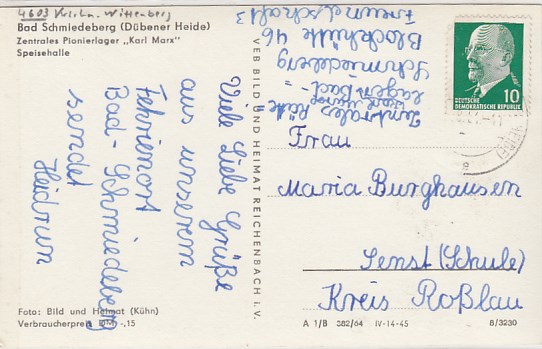 4603 Kr. Wittenberg
Bad Schmiedeberg (Dübener Heide)
Zentrales Pionierlager „Karl Marx"
Speisehalle
Viele Liebe Grüße
aus unserem
Fehrienort
Bad-Schmiedeberg
sendet
Heidrun
Foto: Bild und Heimat (Kühn)
Verbraucherpreis MDN -,15
VEB BILD UND HEIMAT REICHENBACH i. V.
Zentrales
lager Bad-
Schmiedeberg
Blockhütte 46
Freundschaft 3
DEUTSCHE
DEMOKRATISCHE REPUBLIK
10
Frau
Maria Burghausen
Senst (Schule)
Kreis Roßlau
A 1/B 382/64 IV-14-45
8/3230